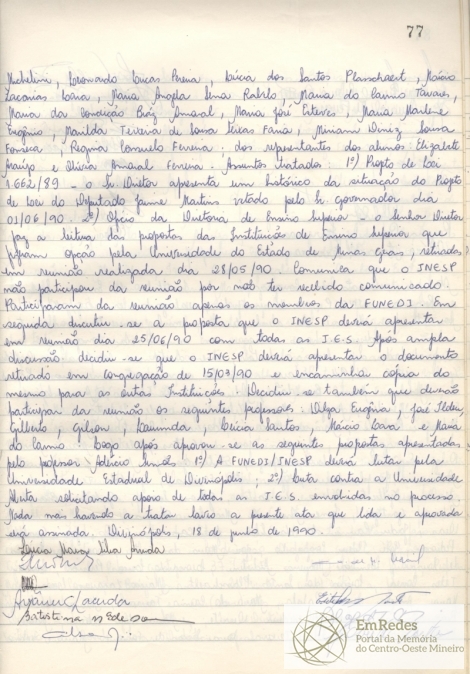 77
Michelini, Leonardo Lucas Pereira, Lúcia dos Santos Planschaert, Márcio
Zacarias Lara, Maria Angela Lima Rabelo, Maria do Carmo Tavares,
Maria da Conceição Amaral, Maria José Esteves, Maria Marlene
Eugênio, Marilda Teixeira de Sousa Faria, Miriam Diniz Sousa
Fonseca, Regina Consuelo Ferreira; dos representantes dos alunos: Elizabete
Araújo e Olívia Amaral Ferreira. Assuntos tratados: 1º) Projeto de Lei
1.662/89 - o Sr Diretor apresenta um histórico da situação do Projeto
de Lei do Deputado Jaime Martins vetado pelo Sr governador dia
01/06/90. 2º) Ofício da Diretoria de Ensino Superior - o Senhor Diretor
faz a leitura das propostas das Instituições de Ensino Superior que
fizeram opção pela Universidade do Estado de Minas Gerais, retiradas
em reunião realizada dia 28/05/90. Comunica que o INESP
não participou da reunião por não ter recebido comunicado.
Participaram da reunião apenas os membros da FUNEDI. Em
seguida discutiu-se a proposta que o INESP deverá apresentar
em reunião dia 25/06/90 com todas as I.E.S. Após ampla
discussão decidiu-se que o INESP deverá apresentar o documento
retirado em congregação de 15/03/90 e encaminhar cópia do
mesmo para as outras Instituições. Decidiu-se também que deverão
participar da reunião os seguintes professores: Eugênia, José Ilídio,
Gilberto, Gilson, Lúcia Santos, Márcio Lara e Maria
do Carmo. Logo após aprovou-se as seguintes propostas apresentadas
pelo professor 1º) A FUNEDI/INESP deverá lutar pela
Universidade Estadual de Divinópolis; 2º) Luta contra a Universidade
Aberta solicitando apoio de todas as I.E.S. envolvidas no processo.
Nada mais havendo a tratar lavro a presente ata que lida e aprovada
será assinada. Divinópolis, 18 de junho de 1990.
Silva Arruda
Lacerda
EmRedes
Portal da Memória
do Centro-Oeste Mineiro